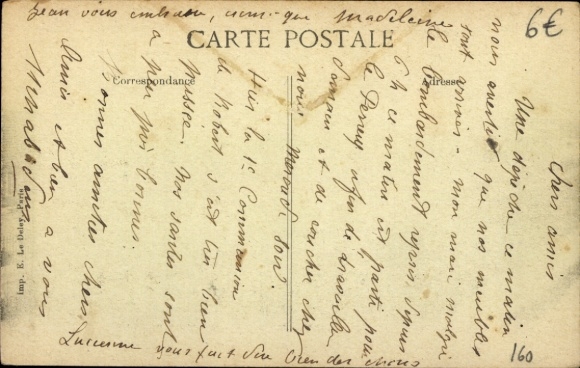 6€
CARTE POSTALE
Correspondance
Adresse
Chers amis
Une dépêche ce matin
nous avertit que nos meubles
sont arrivés - mon mari malgré
le bombardement repris depuis
6h ce matin est partie pour
le Perreux afin de travailler
demain et de coucher chez
nous. Mercredi soir.
Hier la 1e Communion
de Robert s'est très bien
passée. Nos santés sont
à peu près bonnes.
Bonnes amitiés chers
Amis et bien à vous
Lucienne vous fait dire bien des choses
Jean vous embrasse, ainsi que Madeleine
Imp. E. Le Deley, Paris
160